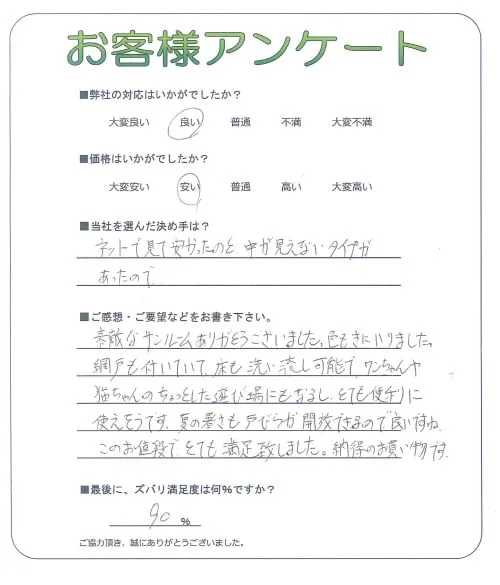 お客様アンケート
■弊社の対応はいかがでしたか？
大変良い 良い 普通 不満 大変不満
■価格はいかがでしたか？
大変安い 安い 普通 高い 大変高い
■当社を選んだ決め手は？
ネットで見て安かったのと、中が見えないタイプが
あったので
■ご感想・ご要望などをお書き下さい。
素敵なサンルームありがとうございました。色もきにいりました。
網戸も付いていて、床も洗い流し可能で、ワンちゃんや
猫ちゃんのちょっとした遊び場にもなるし、とても便利に
使えそうです。夏の暑さも戸びらが開放できるので良いですね。
このお値段でとても満足致しました。納得のお買い物です。
■最後に、ズバリ満足度は何%ですか？
90 %
ご協力頂き、誠にありがとうございました。